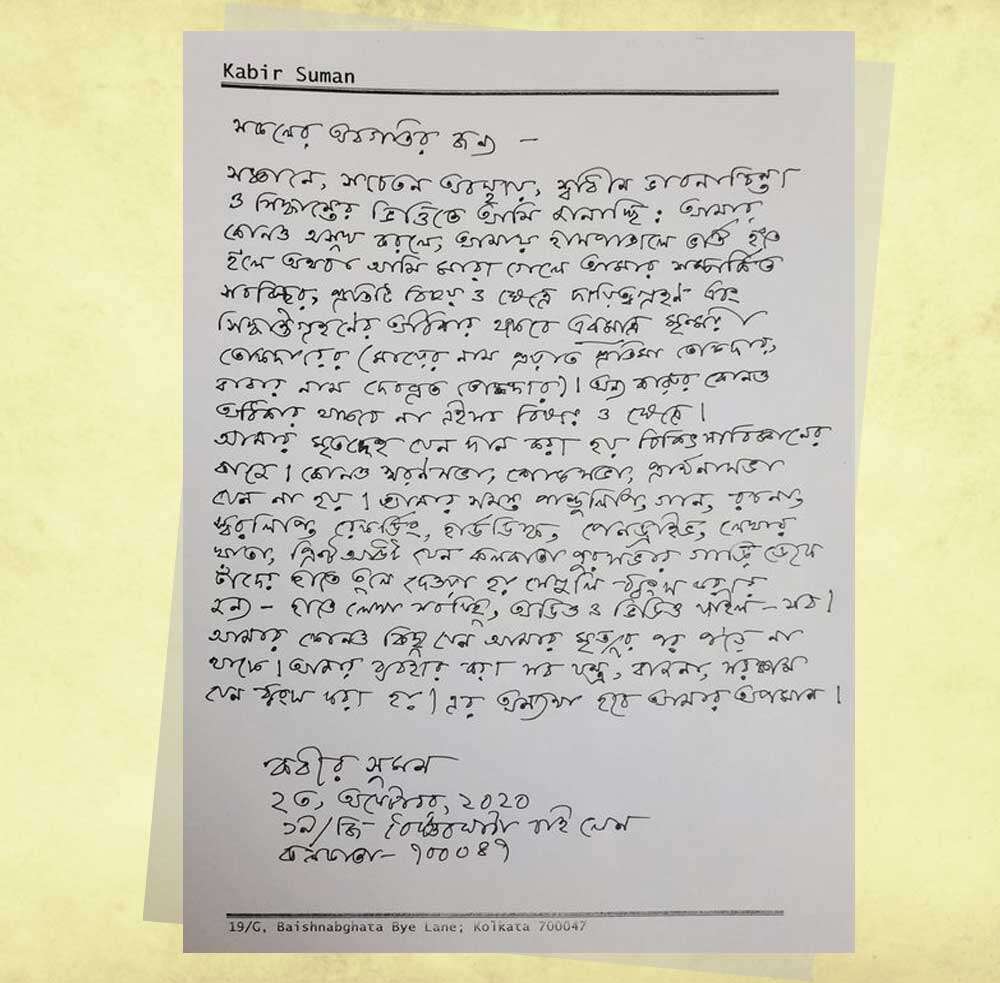 Kabir Suman
সকলের অবগতির জন্য –
সজ্ঞানে, সচেতন অবস্থায়, স্বাধীন ভাবনাচিন্তা
ও সিদ্ধান্তের ভিত্তিতে আমি জানাচ্ছি: আমার
কোনও অসুখ করলে, আমায় হাসপাতালে ভর্তি হতে
হলে অথবা আমি মারা গেলে আমার সম্পর্কিত
সবকিছুর, প্রতিটি বিষয় ও ক্ষেত্রে দায়িত্বগ্রহণ এবং
সিদ্ধান্তগ্রহণের অধিকার থাকবে একমাত্র মৃন্ময়ী
তোকদারের (মায়ের নাম প্রয়াত প্রতিমা তোকদার,
বাবার নাম দেবব্রত তোকদার)। অন্য কারুর কোনও
অধিকার থাকবে না এইসব বিষয় ও ক্ষেত্রে।
আমার মৃতদেহ যেন দান করা হয় চিকিৎসাবিজ্ঞানের
কাজে। কোনও স্মরণসভা, শোকসভা, প্রার্থনাসভা
যেন না হয়। আমার সমস্ত পাণ্ডুলিপি, গান, রচনা,
স্বরলিপি, রেকর্ডিং, হার্ড ডিস্ক, পেনড্রাইভ, লেখার
খাতা, প্রিন্ট আউট যেন কলকাতা পুরসভার গাড়ি ডেকে
তাদের হাতে তুলে দেওয়া হয় সেগুলি ধ্বংস করার
জন্য – হাতে লেখা সবকিছু, অডিও ও ভিডিও ফাইল – সব।
আমার কোনও কিছু যেন আমার মৃত্যুর পর পড়ে না
থাকে। আমার ব্যবহার করা সব যন্ত্র, বাজনা, সরঞ্জাম
যেন ধ্বংস করা হয়। এর অন্যথা হবে আমার অপমান।
কবীর সুমন
২৩, অক্টোবর, ২০২০
১৯/জি বৈষ্ণবঘাটা বাই লেন
কলকাতা – ৭০০০৪৭
19/G, Baishnabghata Bye Lane; Kolkata 700047